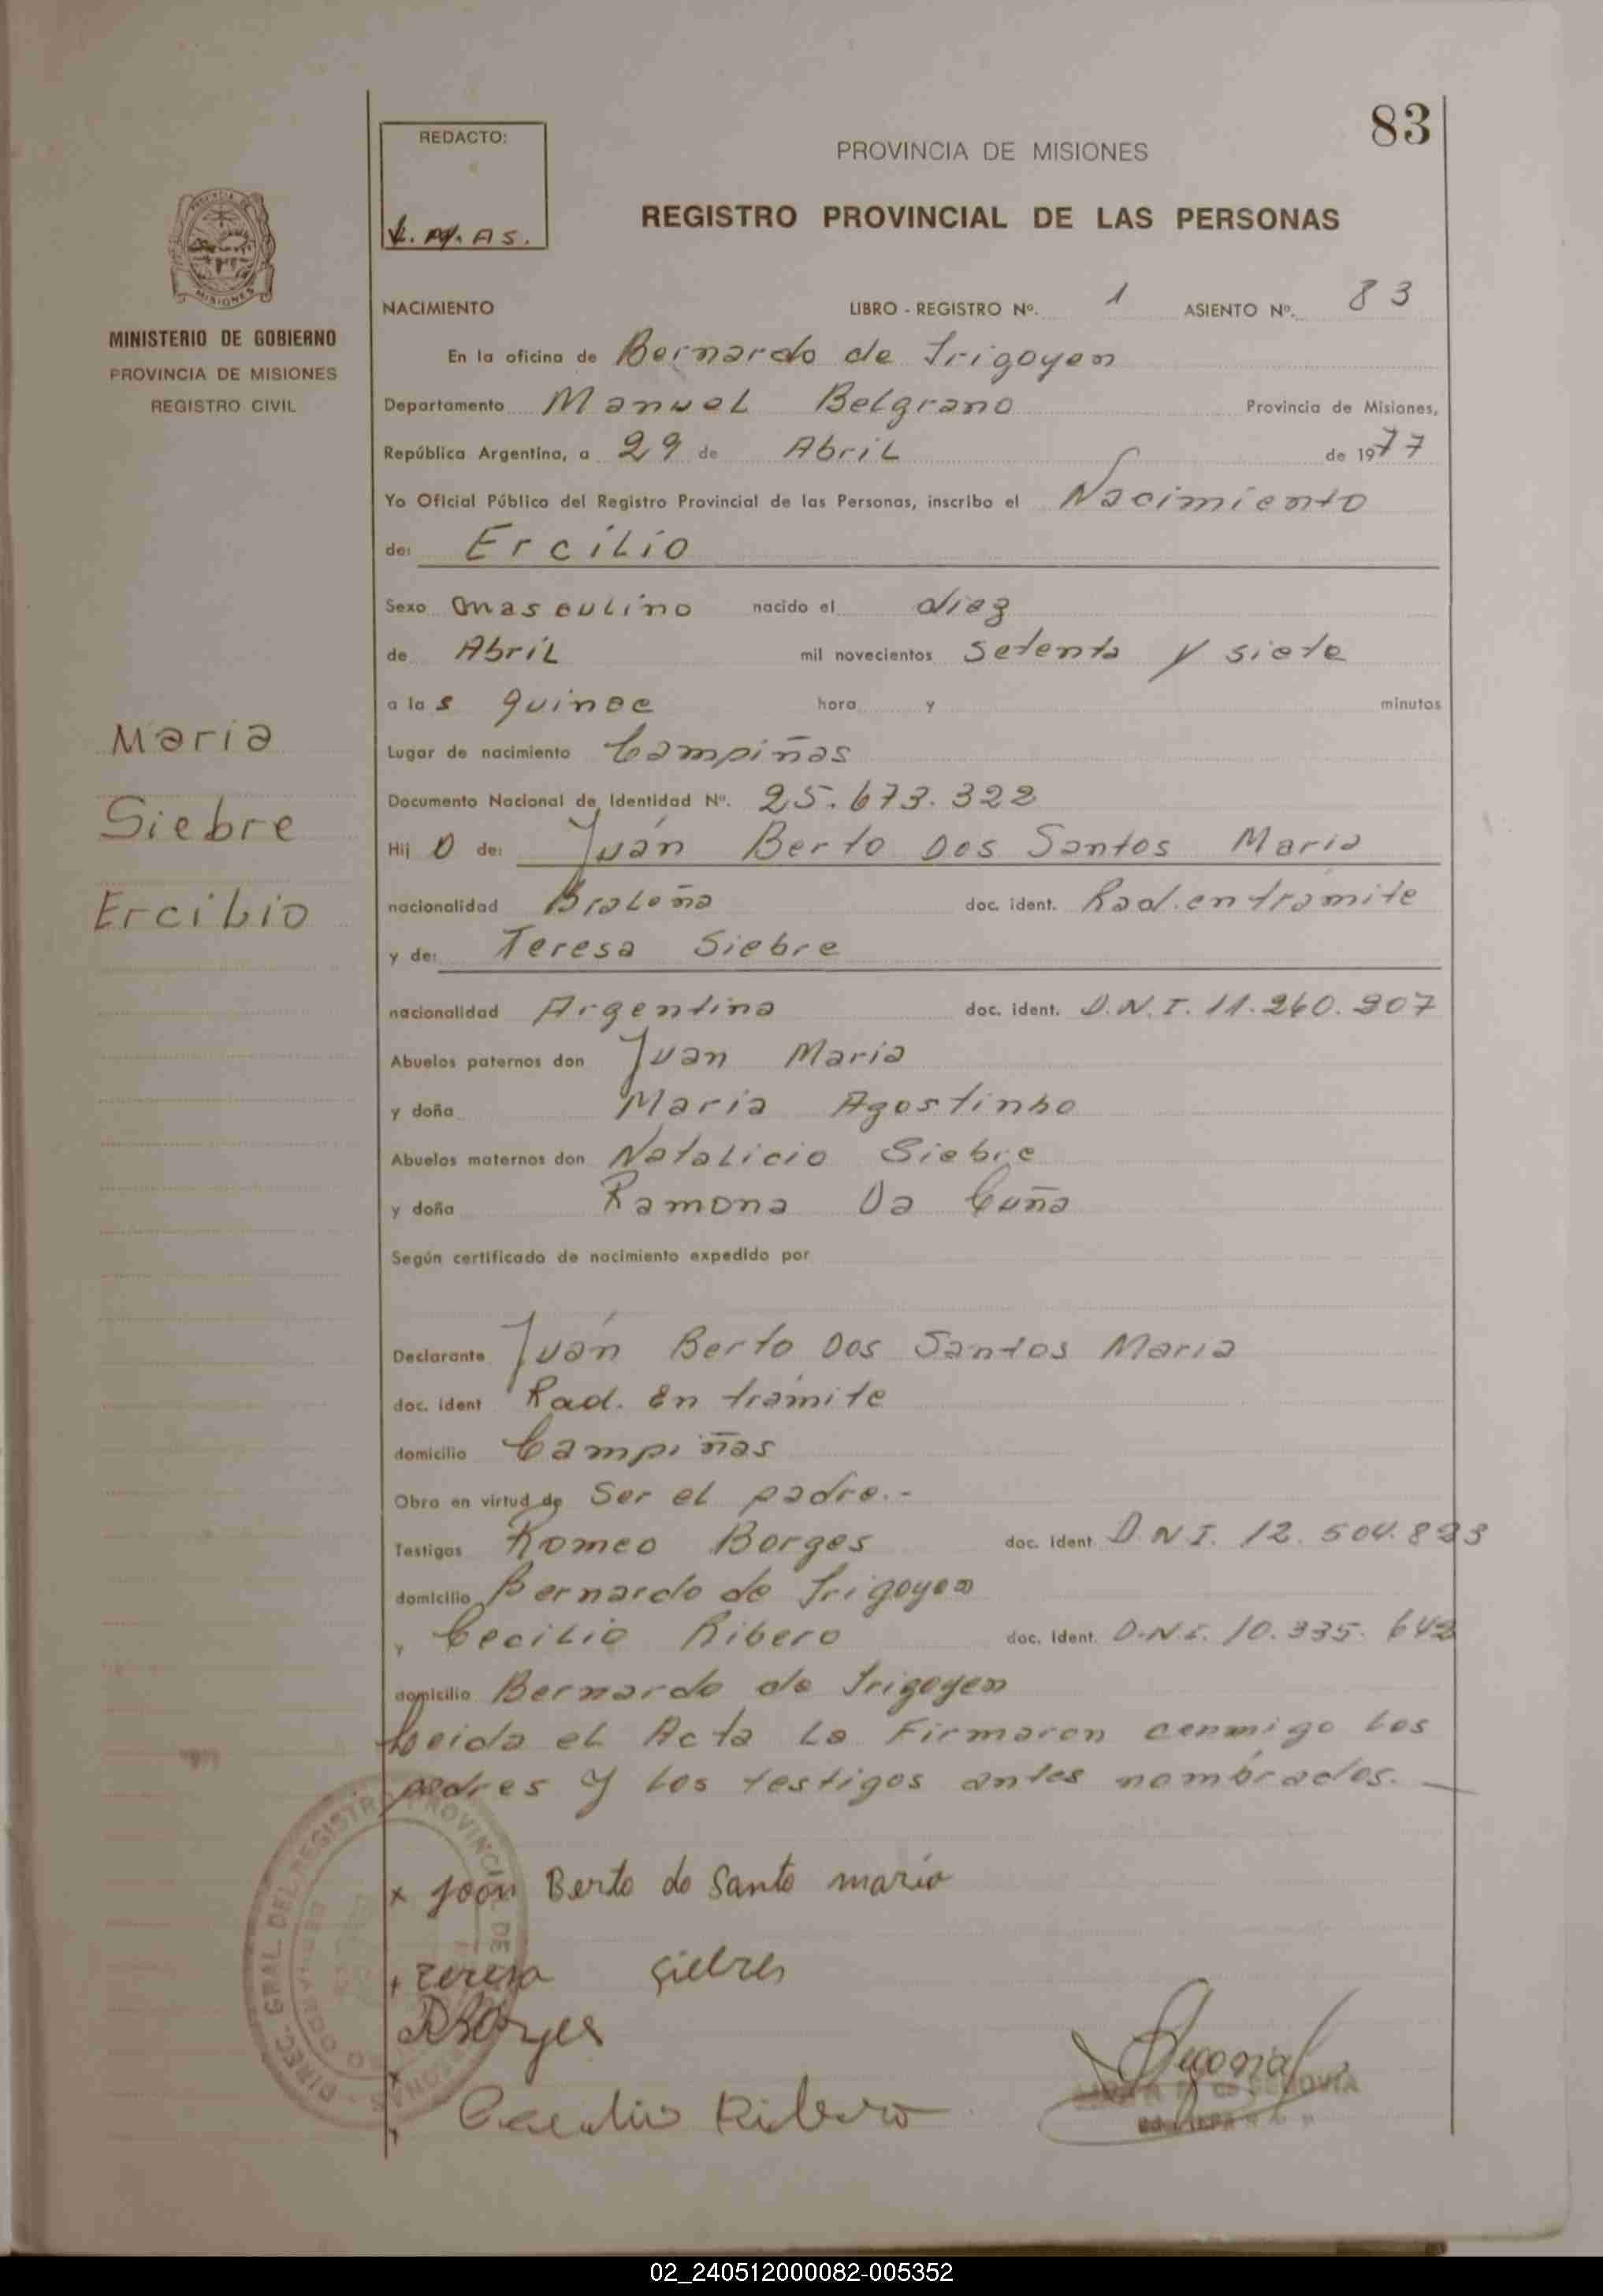 83
REDACTO:
PROVINCIA DE MISIONES
REGISTRO PROVINCIAL DE LAS PERSONAS
MINISTERIO DE GOBIERNO
PROVINCIA DE MISIONES
REGISTRO CIVIL
NACIMIENTO LIBRO - REGISTRO Nº. 1 ASIENTO Nº. 83
En la oficina de Bernardo de Irigoyen
Departamento Manuel Belgrano Provincia de Misiones,
República Argentina, a 29 de Abril de 1977
Yo Oficial Público del Registro Provincial de las Personas, inscribo el Nacimiento
de: Ercilio
Sexo masculino nacido el diez
de Abril mil novecientos setenta y siete
a las quince hora y minutos
Lugar de nacimiento Campiñas
Documento Nacional de Identidad Nº. 25.673.322
Hijo de: Juán Berto Dos Santos Maria
nacionalidad doc. ident. Rad. en tramite
y de: Teresa Siebre
nacionalidad Argentina doc. ident. D.N.I. 11.260.307
Abuelos paternos don Juan Maria
y doña Maria Agostinho
Abuelos maternos don Natalicio Siebre
y doña Ramona Da Cuña
Según certificado de nacimiento expedido por
Declarante Juán Berto Dos Santos Maria
doc. ident Rad. En tramite
domicilio Campiñas
Obra en virtud de Ser el padre.-
Testigos Romeo Borges doc. ident D.N.I. 12.504.823
domicilio Bernardo de Irigoyen
y Cecilio Ribero doc. ident. D.N.I. 10.335.642
domicilio Bernardo de Irigoyen
Leida el Acta la Firmaron conmigo los
padres y los testigos antes nombrados.
Maria
Siebre
Ercilio
x Joon Berto do Santo maria
x teresa siebres
RBorges
Cecilio Ribero
DIREC. GRAL. DEL REGISTRO PROVINCIAL DE
02_240512000082-005352